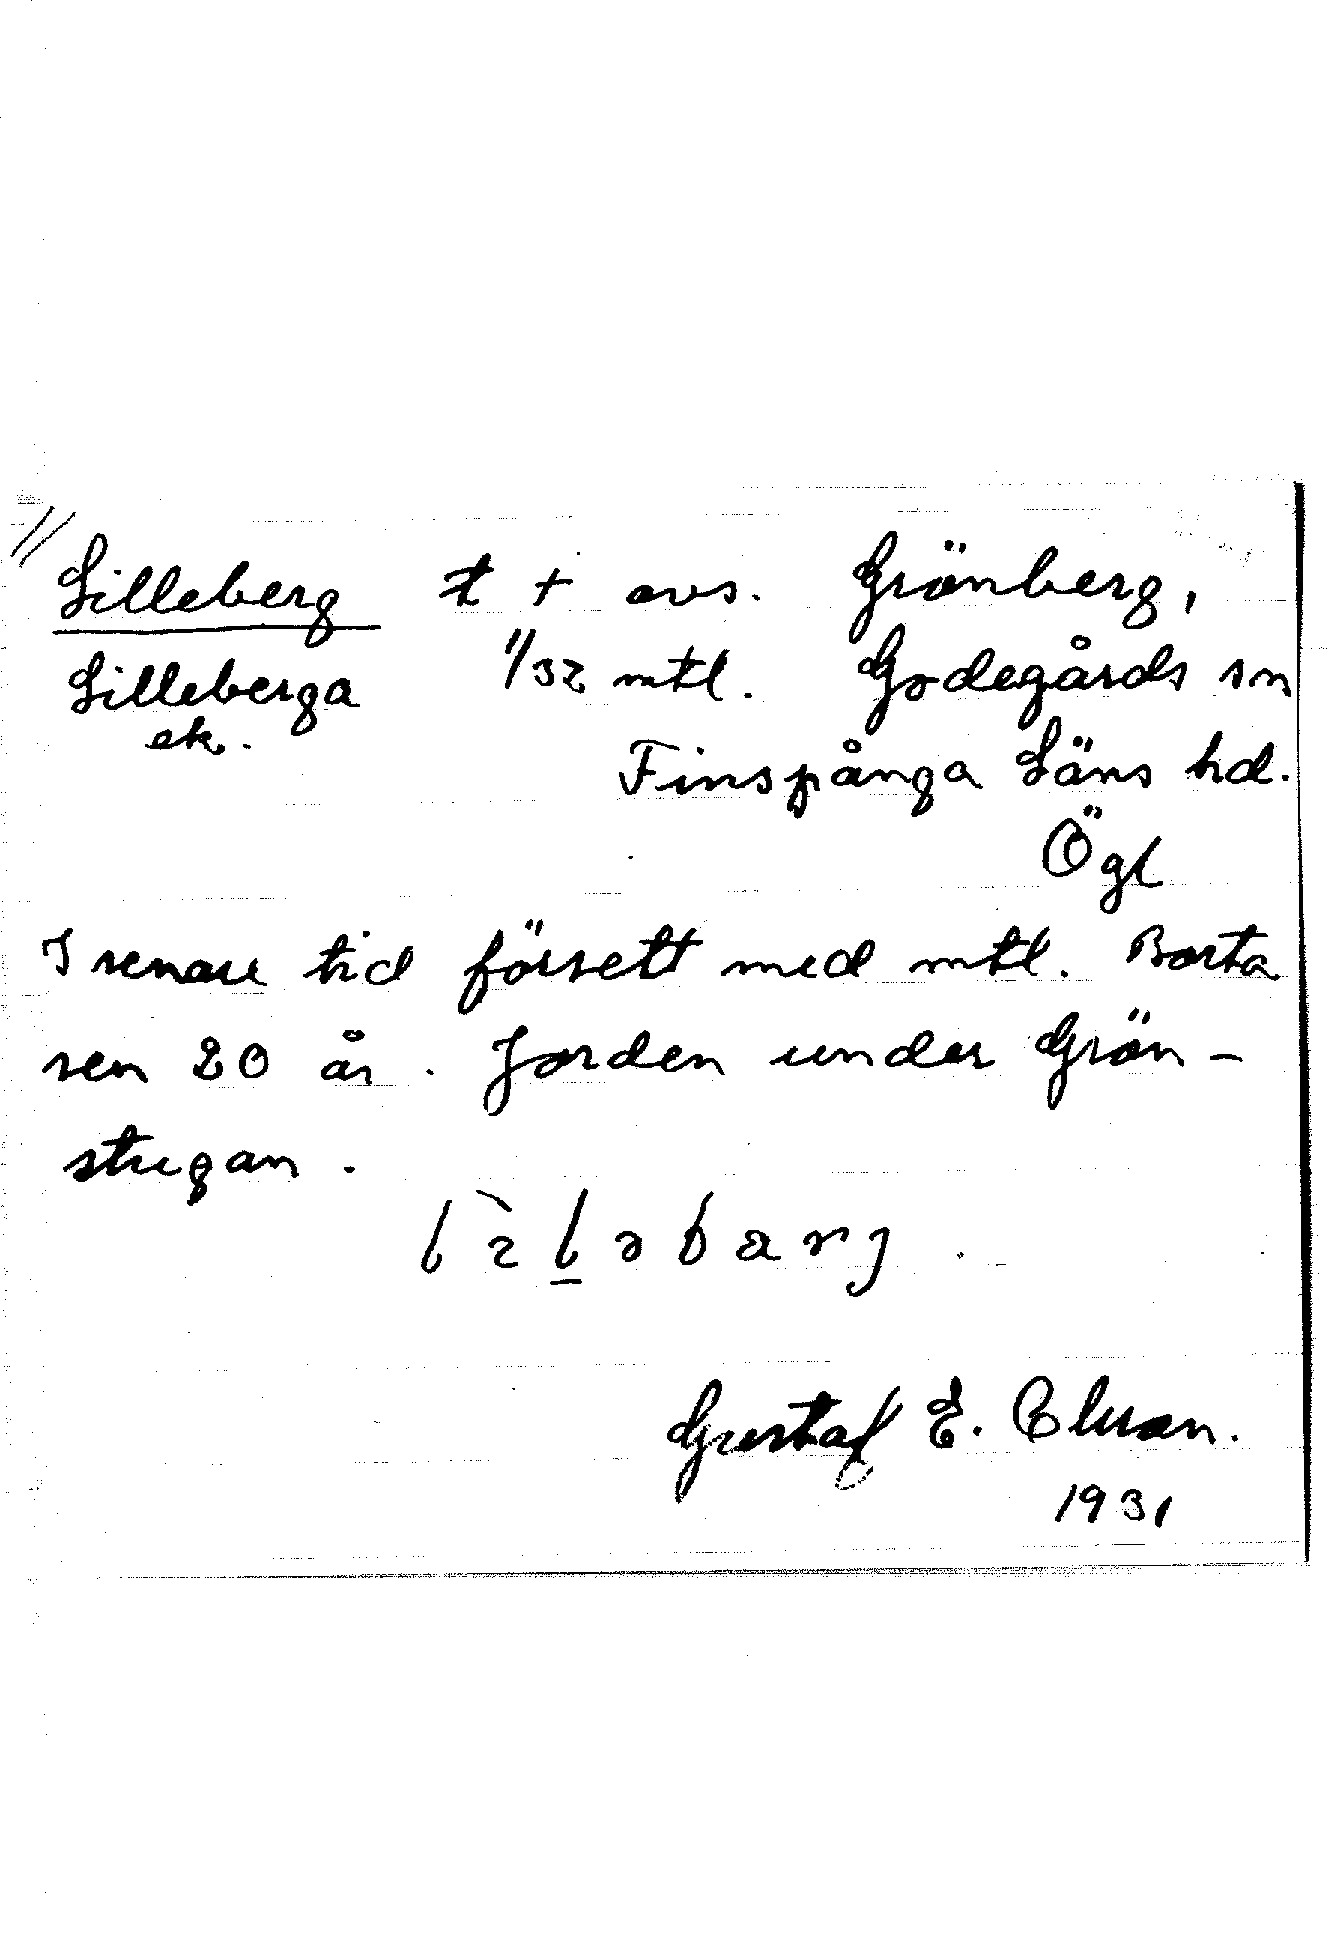 Lilleberg t + avs. Grönberg,
Lilleberga 1/32 mtl. Godegårds sn
ek. Finspånga Läns hd.
Ögl
I senare tid försett med mtl. Borta
sen 20 år. Jorden under Grön-
stugan.
Gustaf E. 
1931